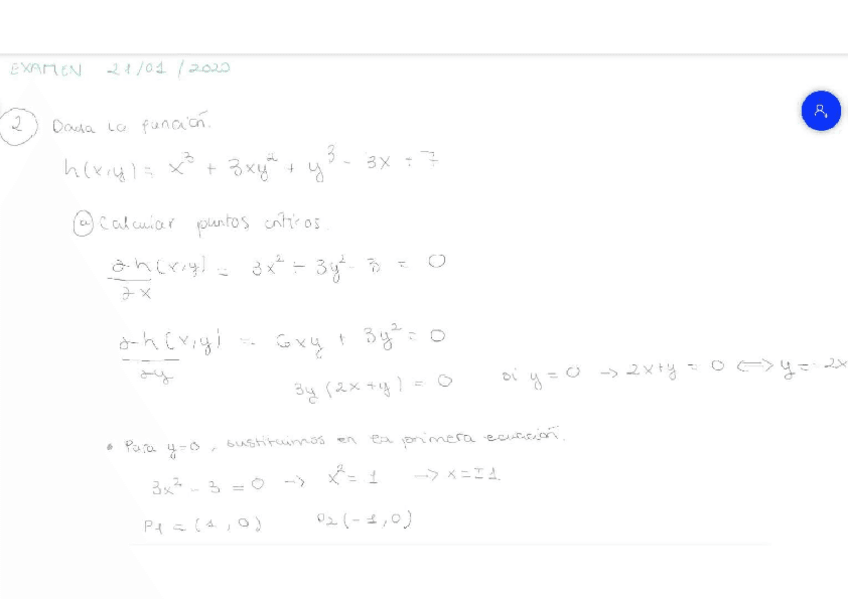 EXAMEN 21/01/2020
2 Dada la función.
h(x,y) = x³ + 3xy² + y³ - 3x + 7
a) Calcular puntos críticos.
∂h(x,y)/∂x = 3x² + 3y² - 3 = 0
∂h(x,y)/∂y = 6xy + 3y² = 0
3y(2x+y) = 0 si y = 0 → 2x+y = 0 ⟺ y = -2x
• Para y=0, sustituimos en la primera ecuación.
3x² - 3 = 0 → x² = 1 → x = ±1
P1 = (1,0) P2(-1,0)